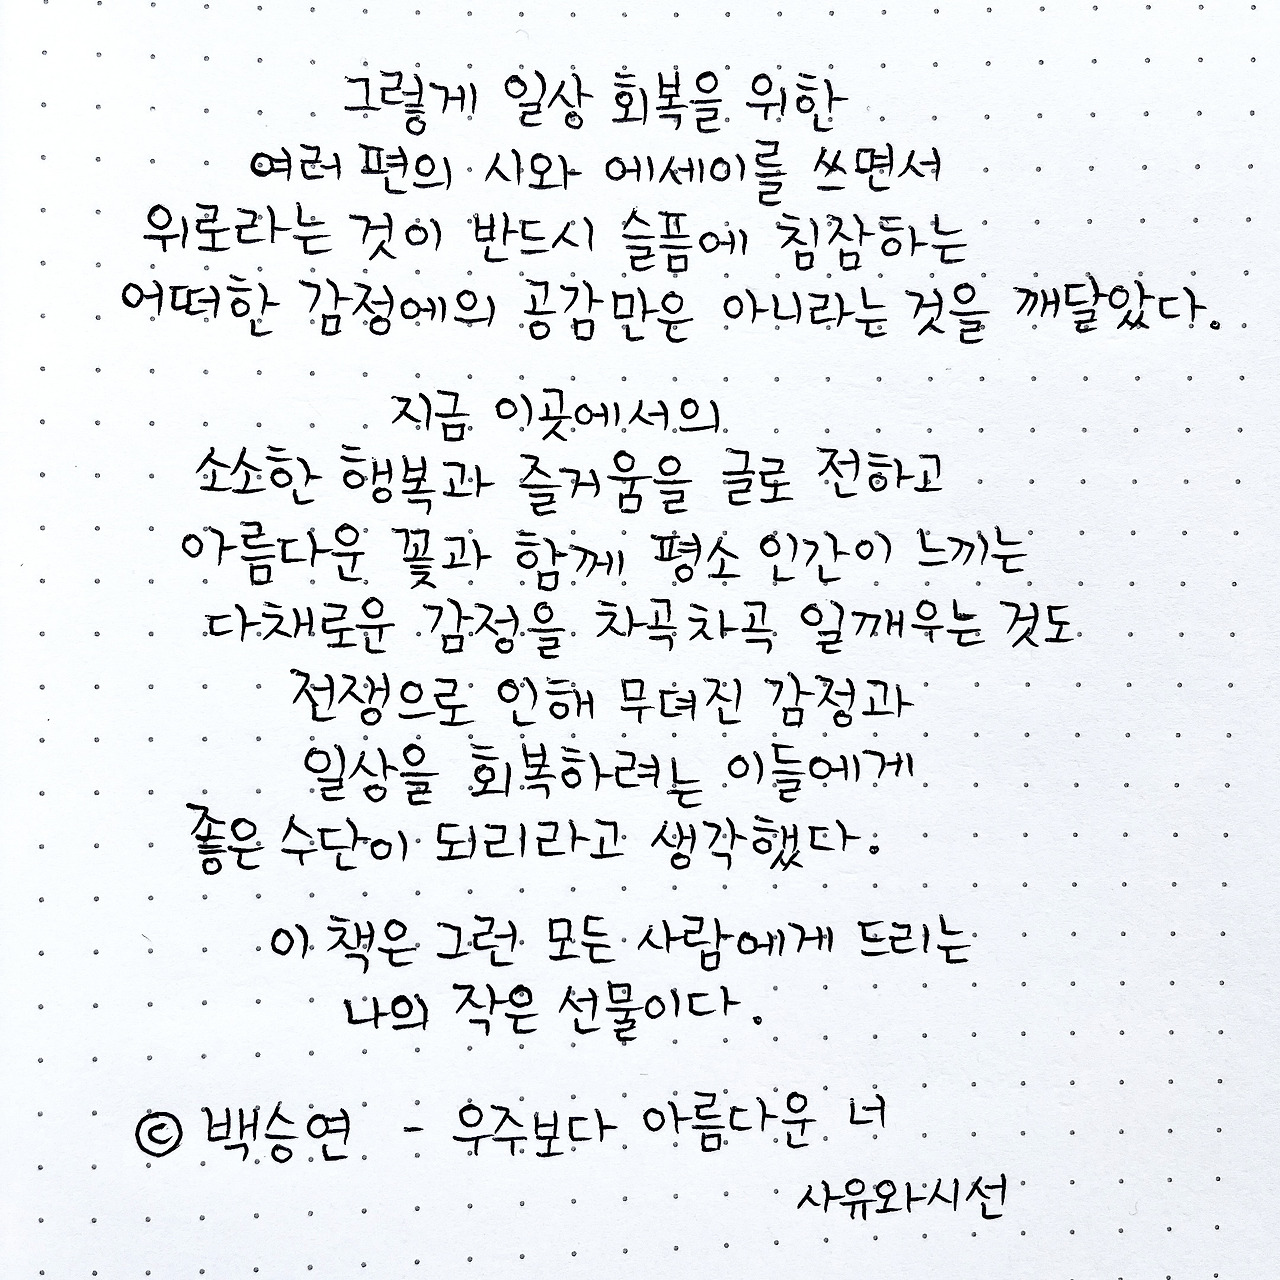 그렇게 일상 회복을 위한
여러 편의 시와 에세이를 쓰면서
위로라는 것이 반드시 슬픔에 침잠하는
어떠한 감정에의 공감만은 아니라는 것을 깨달았다.
지금 이곳에서의
소소한 행복과 즐거움을 글로 전하고
아름다운 꽃과 함께 평소 인간이 느끼는
다채로운 감정을 차곡차곡 일깨우는 것도
전쟁으로 인해 무뎌진 감정과
일상을 회복하려는 이들에게
좋은 수단이 되리라고 생각했다.
이 책은 그런 모든 사람에게 드리는
나의 작은 선물이다.
© 백승연 - 우주보다 아름다운 너
사유와시선